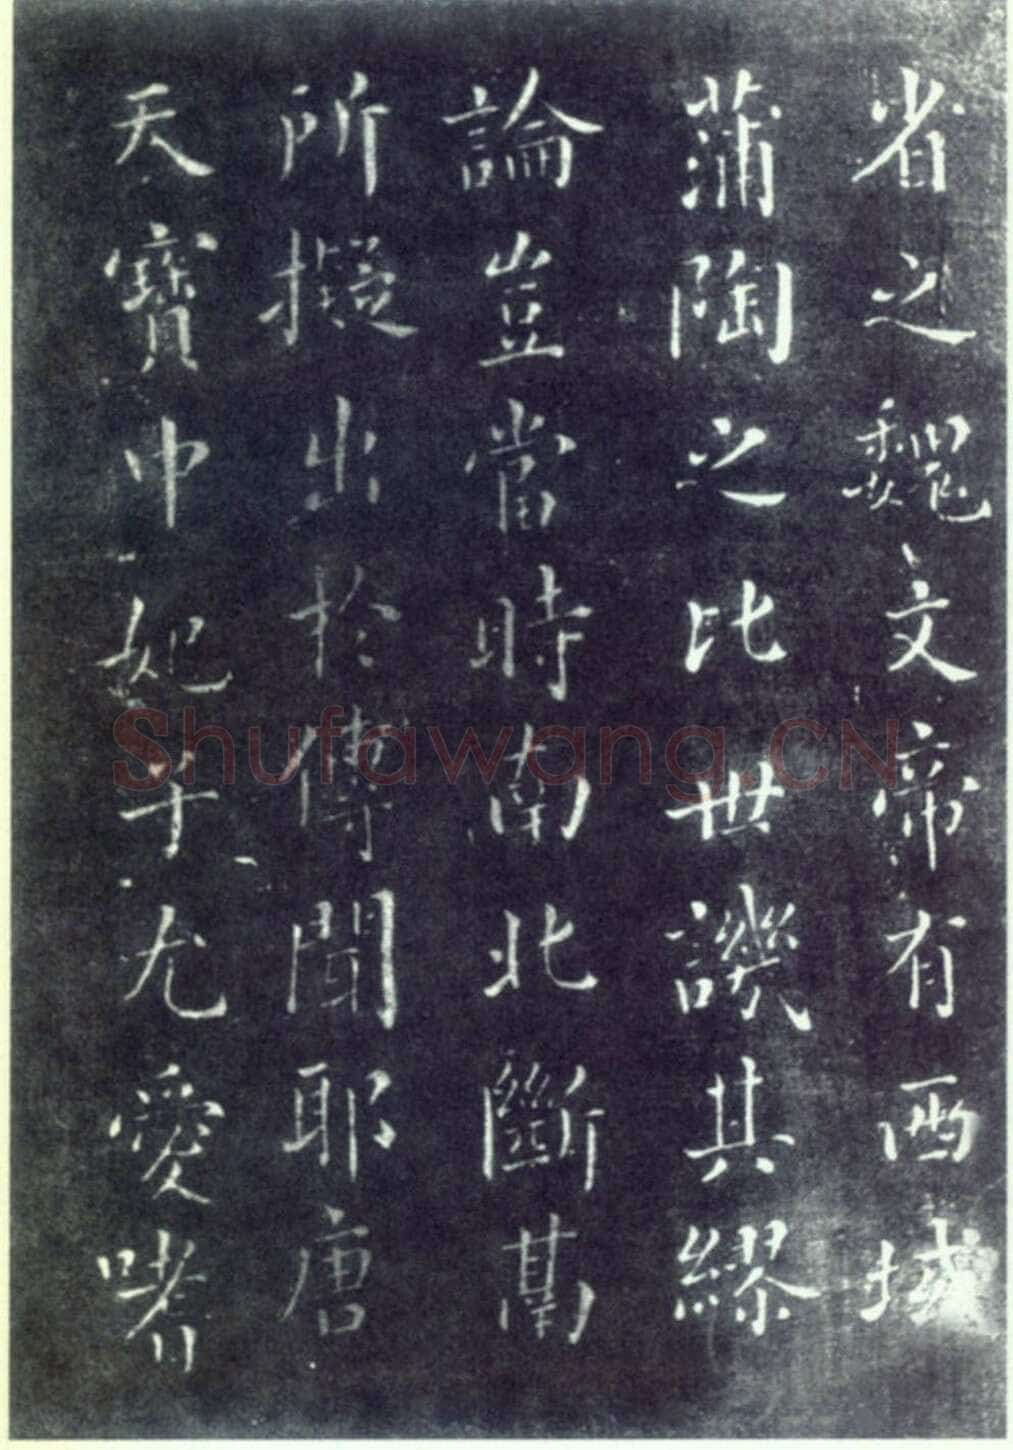 省之魏文帝有西域
蒲陶之比世譏其繆
論豈當時南北斷鬲
所擬出於傳聞耶唐
天寶中妃子尤愛嗜
Shufawang.CN